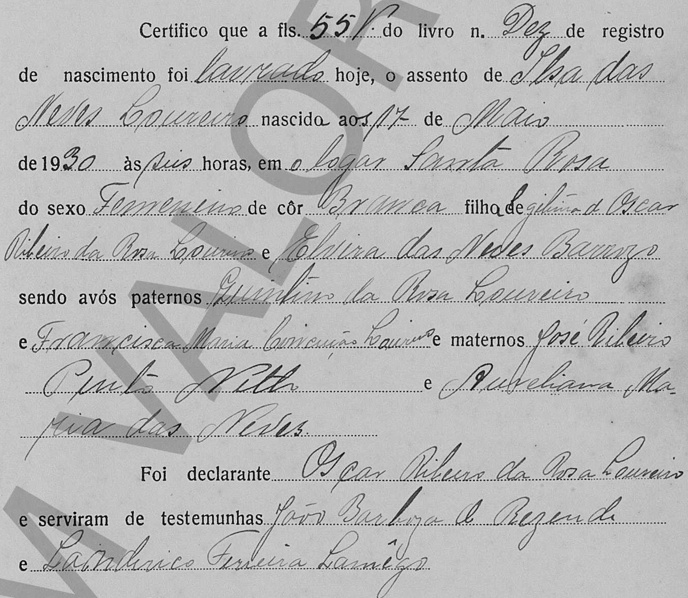 Certifico que a fls. 55 V. do livro n. Dez de registro
de nascimento foi lavrado hoje, o assento de Ilsa das
Neves Loureiro nascida aos 17 de Maio
de 1930 às seis horas, em o logar Santa Rosa
do sexo Femenino de côr Branca filha legitima de Oscar
Ribeiro da Rosa Loureiro e Elvira das Neves Barrozo
sendo avós paternos Quintino da Rosa Loureiro
e Francisca Maria Conceição Loureiro e maternos José Ribeiro
Pinto Netto e Aureliana Ma-
ria das Neves
Foi declarante Oscar Ribeiro da Rosa Loureiro
e serviram de testemunhas João Barboza de Rezende
e Ferreira Lamêgo
M VALOR